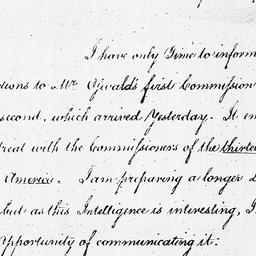 I have only Time to inform
tions to Mr Oswald's first Commission
second, which arrived Yesterday. It em
treat with the Commissioners of the thirtee
America. I am preparing a longer L
but as this Intelligence is interesting, I
opportunity of communicating it: